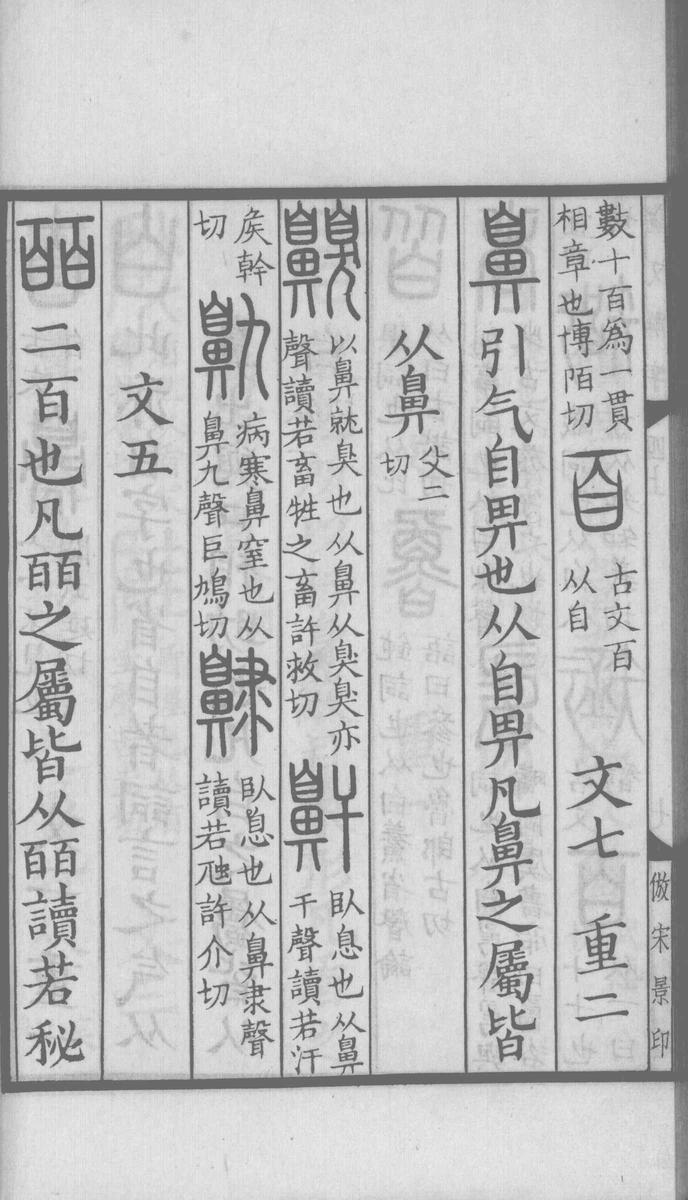 數十百爲一貫相章也博陌切 百 古文百从自 文七 重二
鼻 引气自畀也从自畀凡鼻之屬皆
从鼻 父二切
齅 以鼻就臭也从鼻从臭臭亦聲讀若畜牲之畜許救切 鼾 臥息也从鼻干聲讀若汗
矦幹切 鼽 病寒鼻窒也从鼻九聲巨鳩切 䶓 臥息也从鼻隶聲讀若虺許介切
文五
皕 二百也凡皕之屬皆从皕讀若祕
倣宋景印